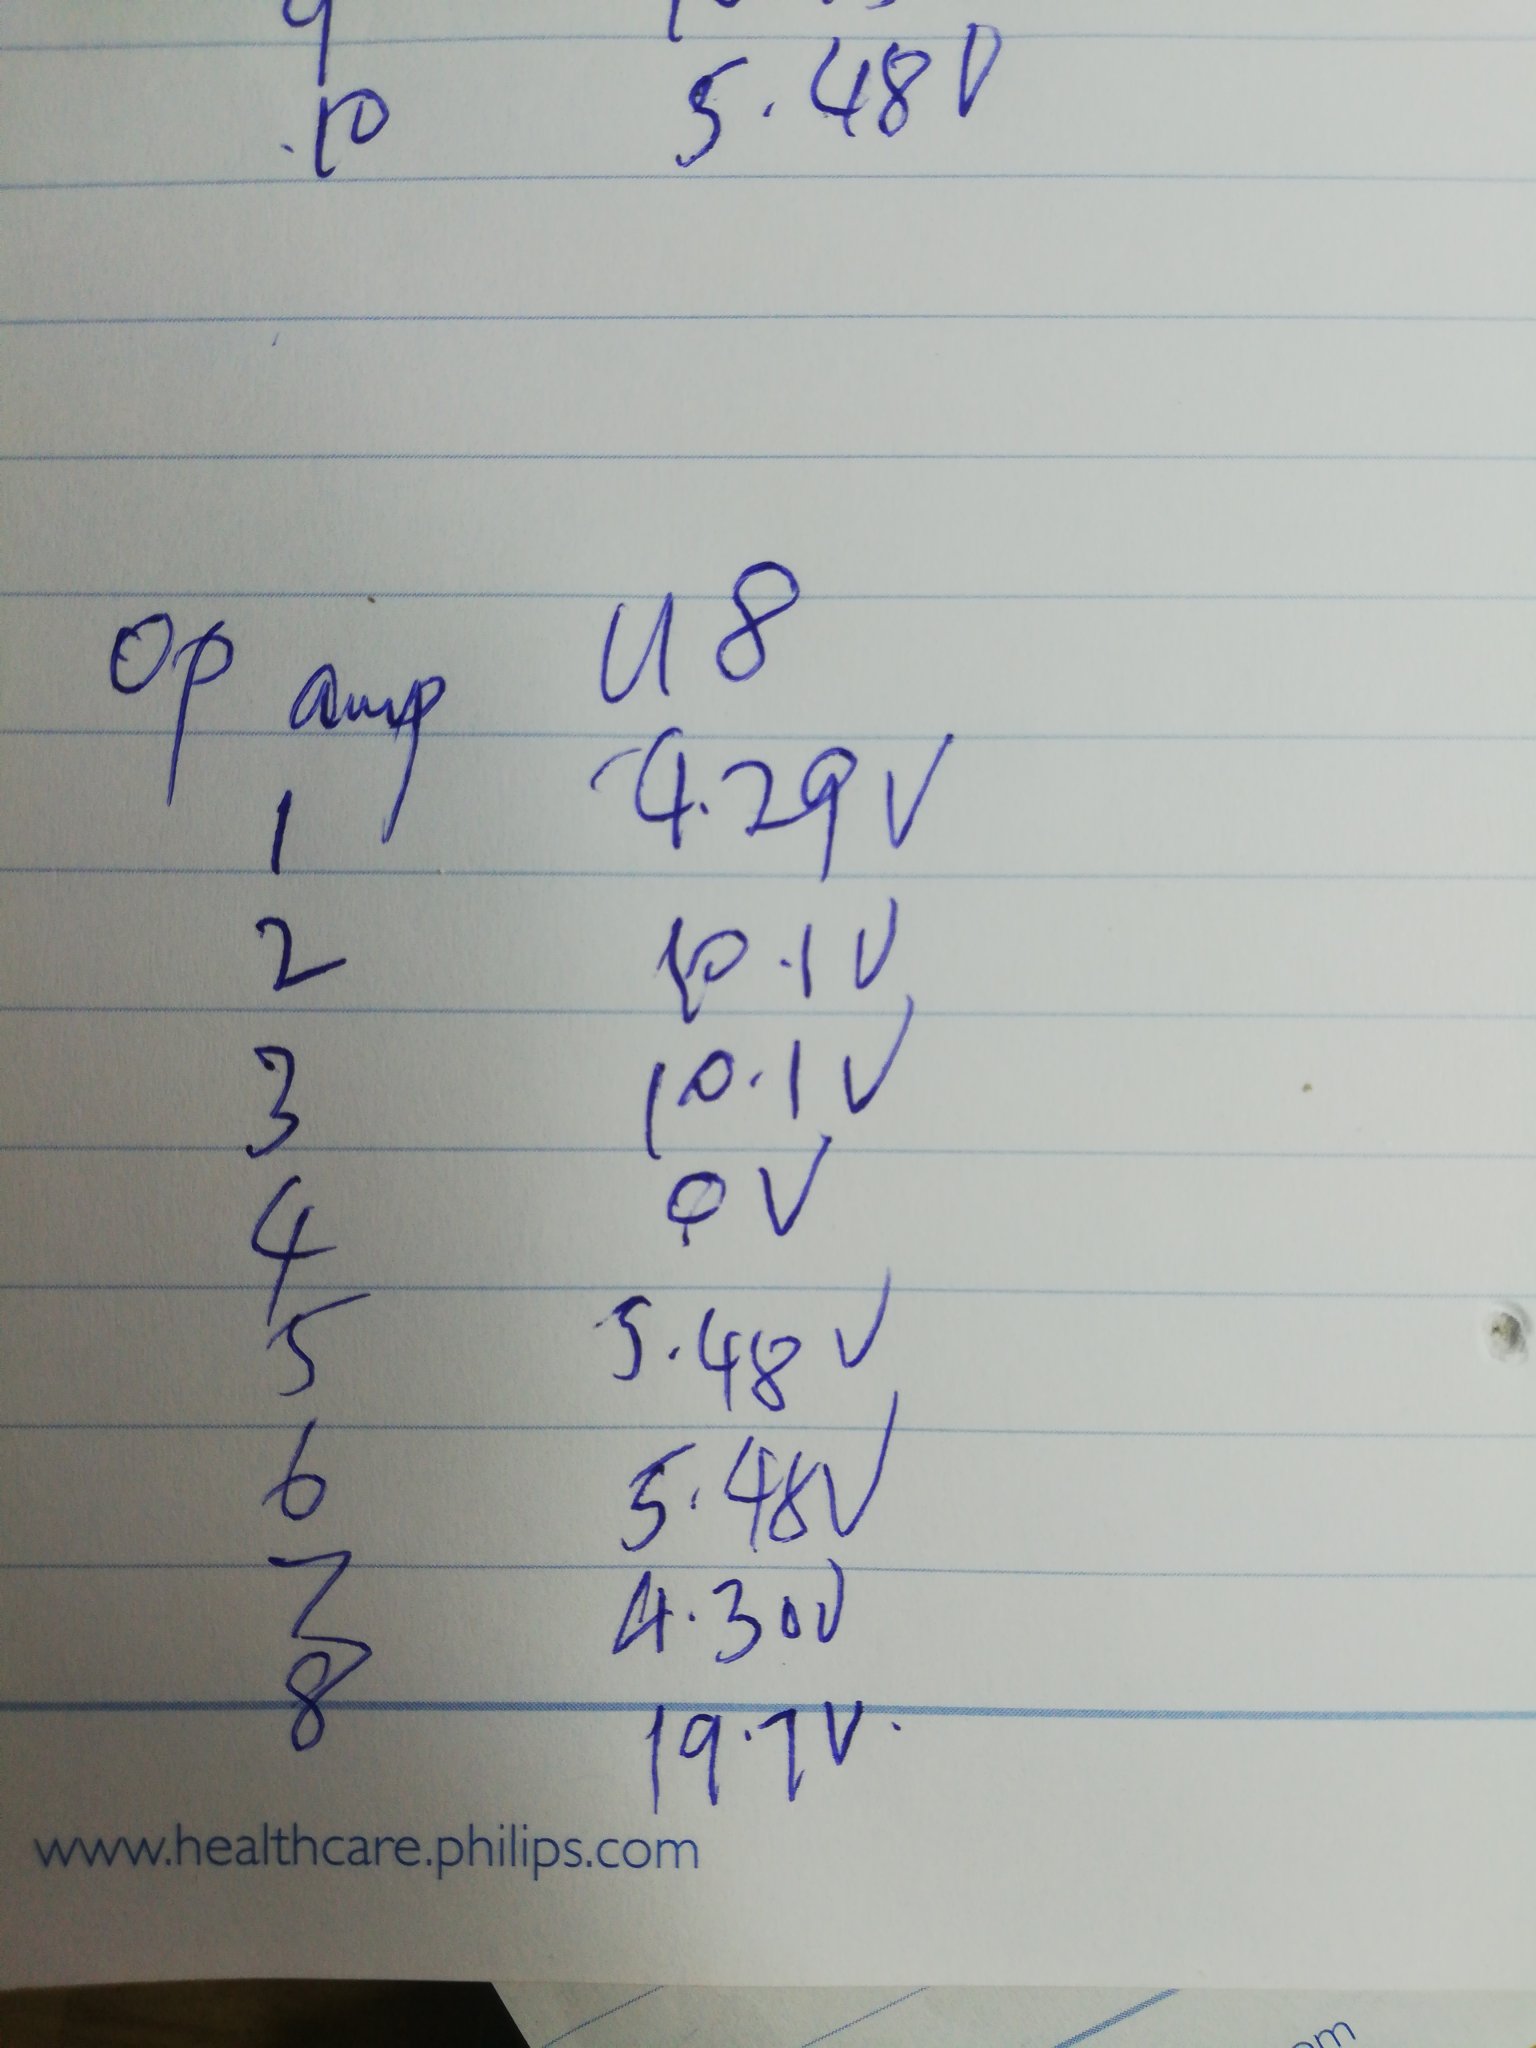 9
10 5.48V
Op amp U8
1 -4.29V
2 10.1V
3 10.1V
4 0V
5 5.48V
6 5.48V
7 4.30V
8 19.7V.
www.healthcare.philips.com
om